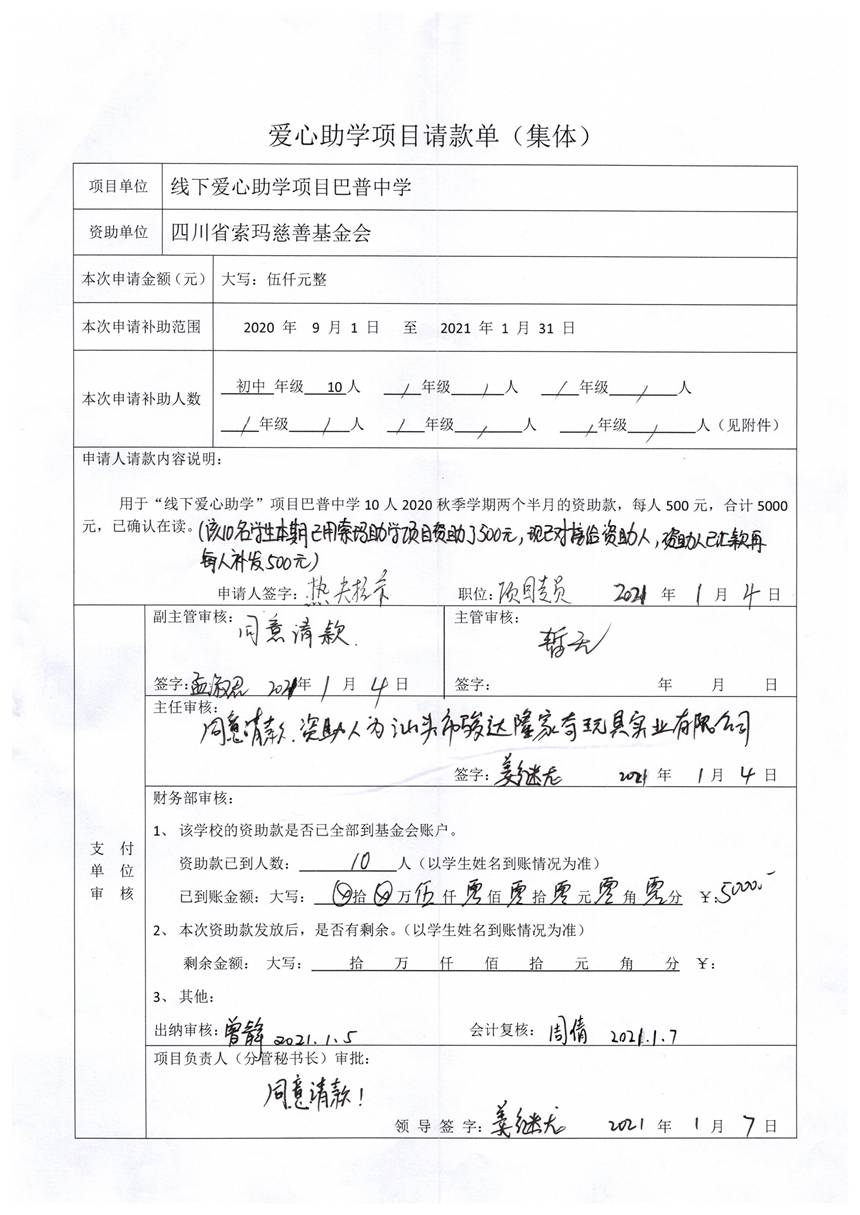 爱心助学项目请款单（集体）
项目单位 线下爱心助学项目巴普中学
资助单位 四川省索玛慈善基金会
本次申请金额（元） 大写：伍仟元整
本次申请补助范围 2020 年 9 月 1 日 至 2021 年 1 月 31 日
本次申请补助人数 初中 年级 10 人 / 年级 / 人 / 年级 / 人
/ 年级 / 人 / 年级 / 人 / 年级 / 人（见附件）
申请人请款内容说明：
用于“线下爱心助学”项目巴普中学10人2020秋季学期两个半月的资助款，每人500元，合计5000
元，已确认在读。（该10名学生本期已用索玛助学项目资助了500元，现已对接给资助人，资助人已汇款再
每人补发500元）
申请人签字： 职位：项目专员 2021 年 1 月 4 日
副主管审核： 同意请款. 主管审核：
签字：孟淑君 2021年 1 月 4 日 签字： 年 月 日
主任审核：
同意请款.资助人为汕头市骏达隆家奇玩具实业有限公司
签字：姜继尤 2021 年 1 月 4 日
支付单位审核
财务部审核：
1、 该学校的资助款是否已全部到基金会账户。
资助款已到人数： 10 人（以学生姓名到账情况为准）
已到账金额：大写： ⊗拾⊗万伍仟零佰零拾零元零角零分 ￥：5000.-
2、 本次资助款发放后，是否有剩余。（以学生姓名到账情况为准）
剩余金额： 大写： 拾 万 仟 佰 拾 元 角 分 ￥：
3、 其他：
出纳审核：曾静 2021.1.5 会计复核： 周倩 2021.1.7
项目负责人（分管秘书长）审批：
同意请款！
领 导 签 字：姜继尤 2021 年 1 月 7 日